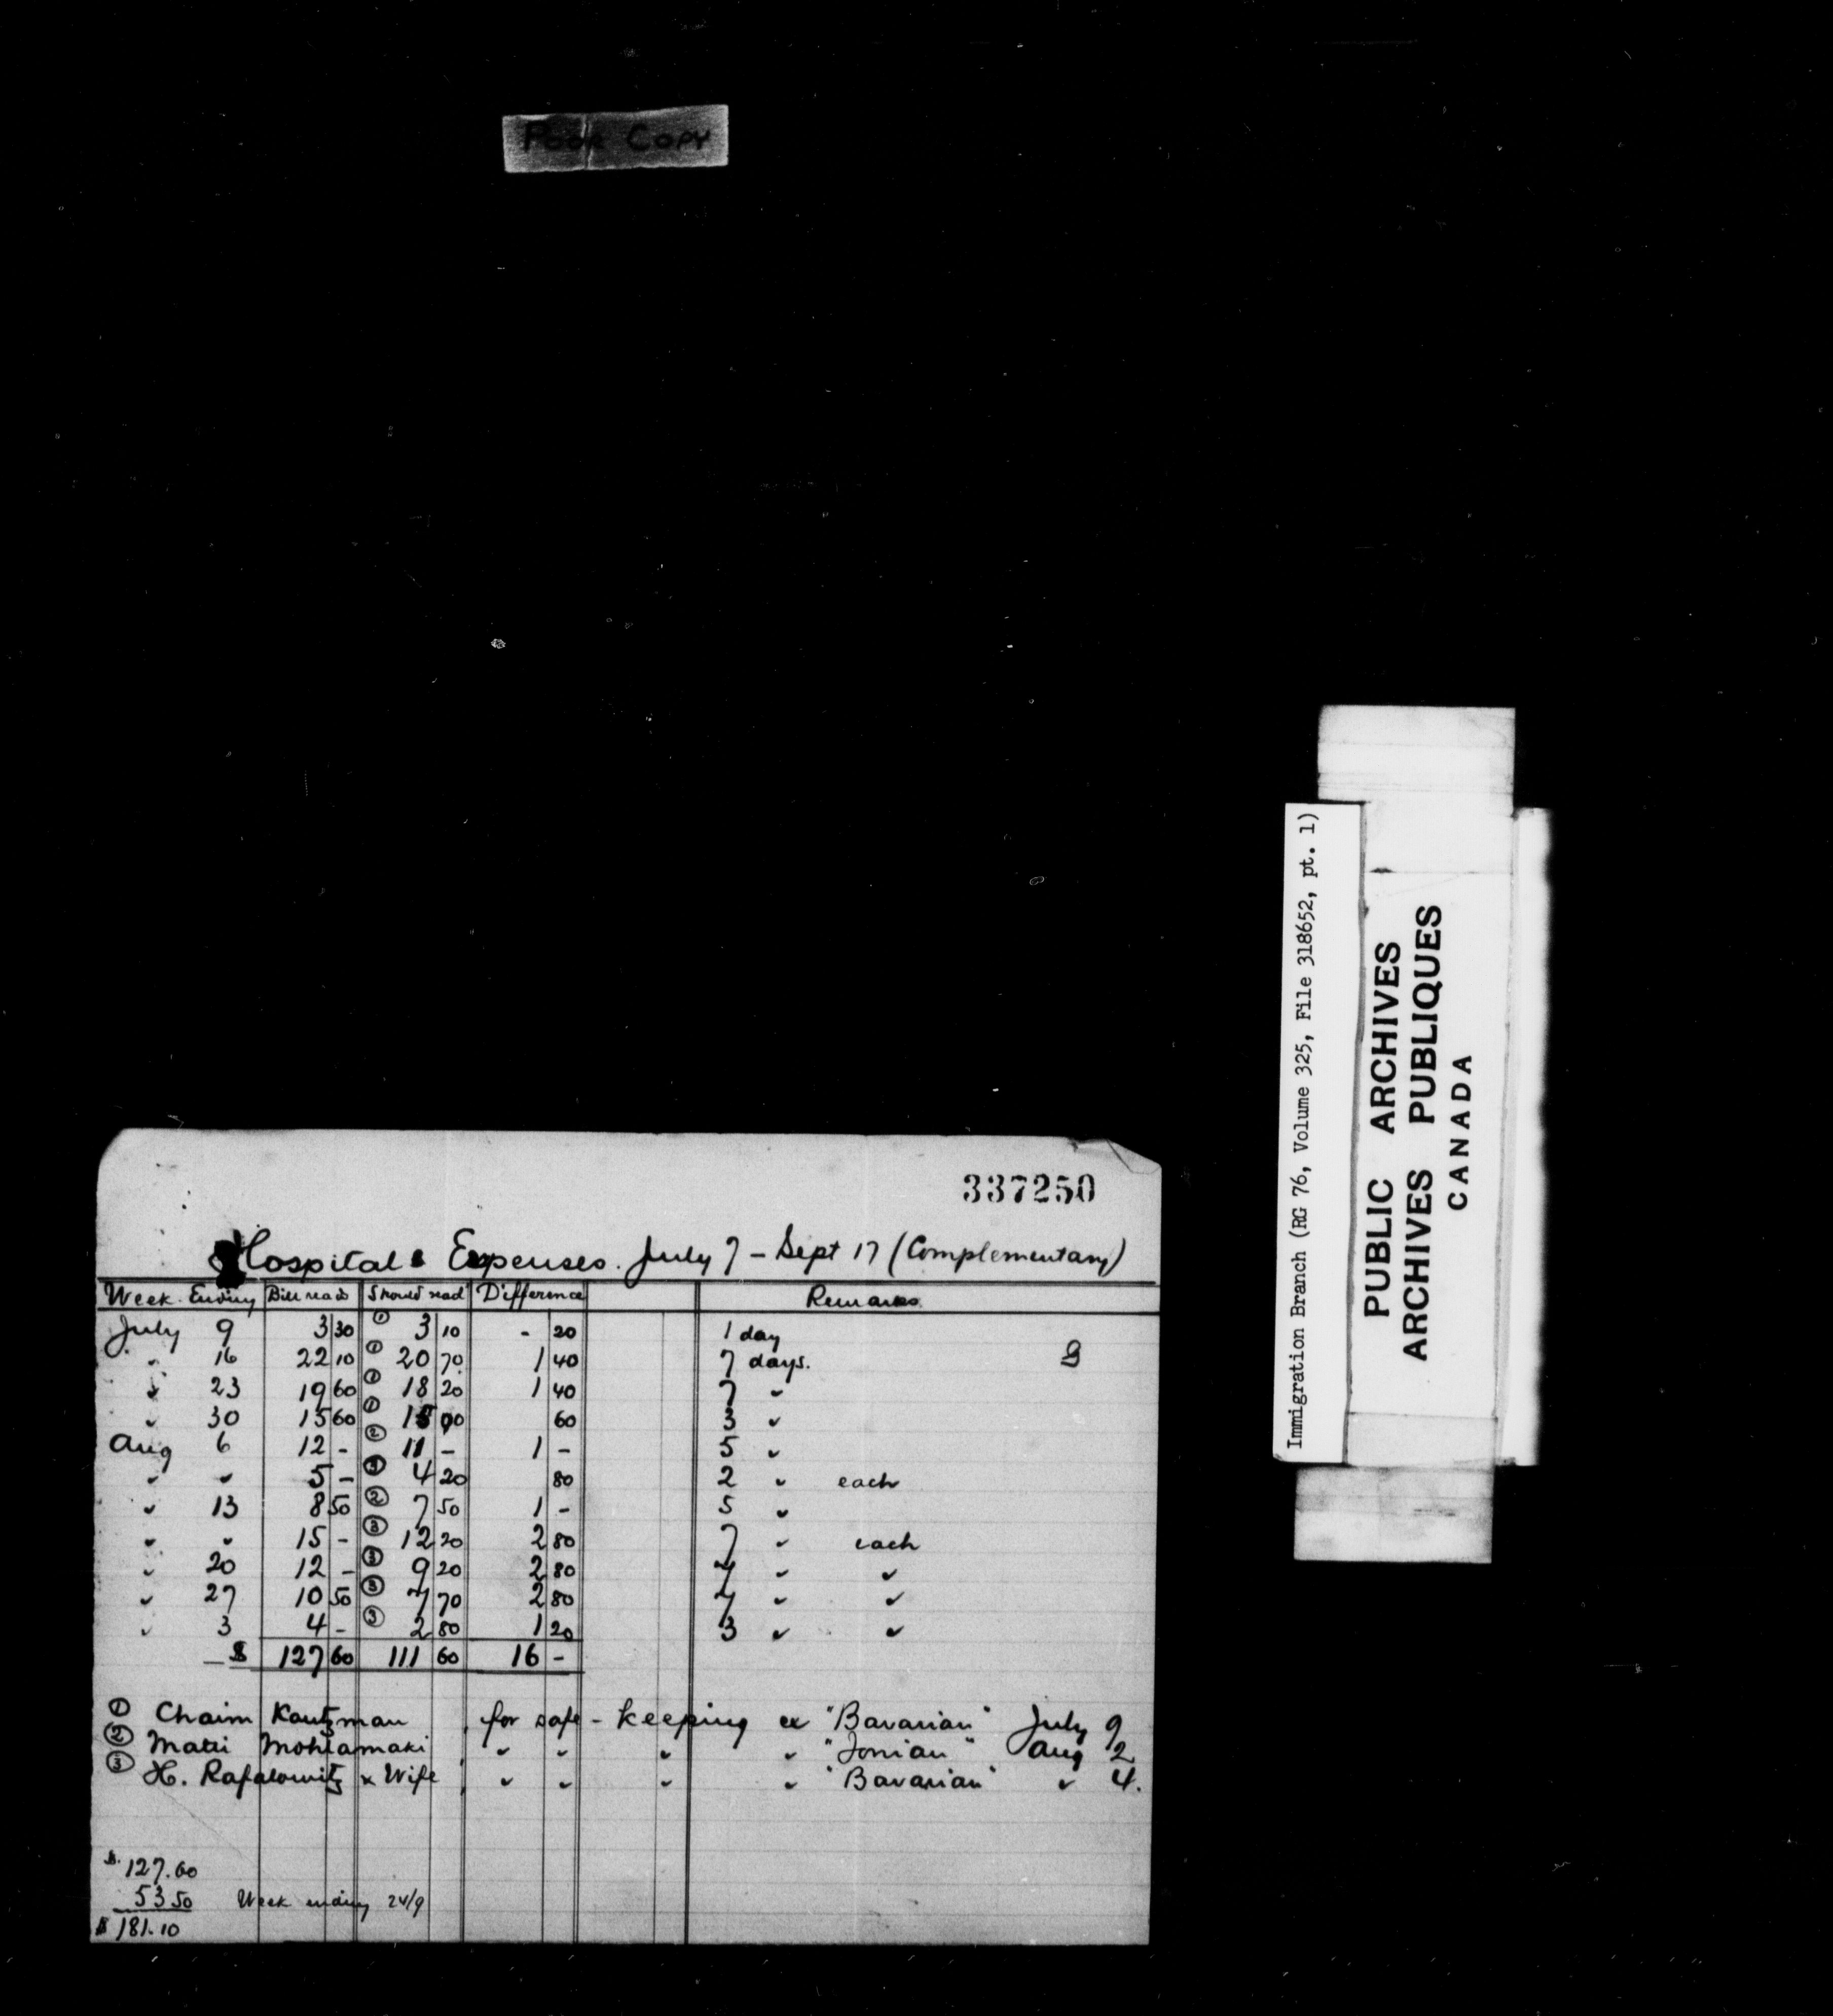 Poor Copy
337250
Hospital Expenses. July 7 - Sept 17 (Complementary)
Week Ending Bill reads Should read Difference Remarks
July 9 3 30 ① 3 10 - 20 1 day
" 16 22 10 ① 20 70 1 40 7 days.
" 23 19 60 ① 18 20 1 40 7 "
" 30 15 60 ① 15 00 60 3 "
Aug 6 12 - ② 11 - 1 - 5 "
" " 5 - ③ 4 20 80 2 " each
" 13 8 50 ② 7 50 1 - 5 "
" " 15 - ③ 12 20 2 80 7 " each
" 20 12 - ③ 9 20 2 80 7 " "
" 27 10 50 ③ 7 70 2 80 7 " "
" 3 4 - ③ 2 80 1 20 3 " "
$ 127 60 111 60 16 -
① Chaim Kautzman for safe-keeping ex "Bavarian" July 9
② Matti " " " " "Ionian" Aug 2
③ H. Rafalowitz & Wife " " " " "Bavarian" " 4.
$127.60
53 50 Week ending 24/9
$181.10
Immigration Branch (RG 76, Volume 325, File 318652, pt. 1)
PUBLIC ARCHIVES
ARCHIVES PUBLIQUES
CANADA